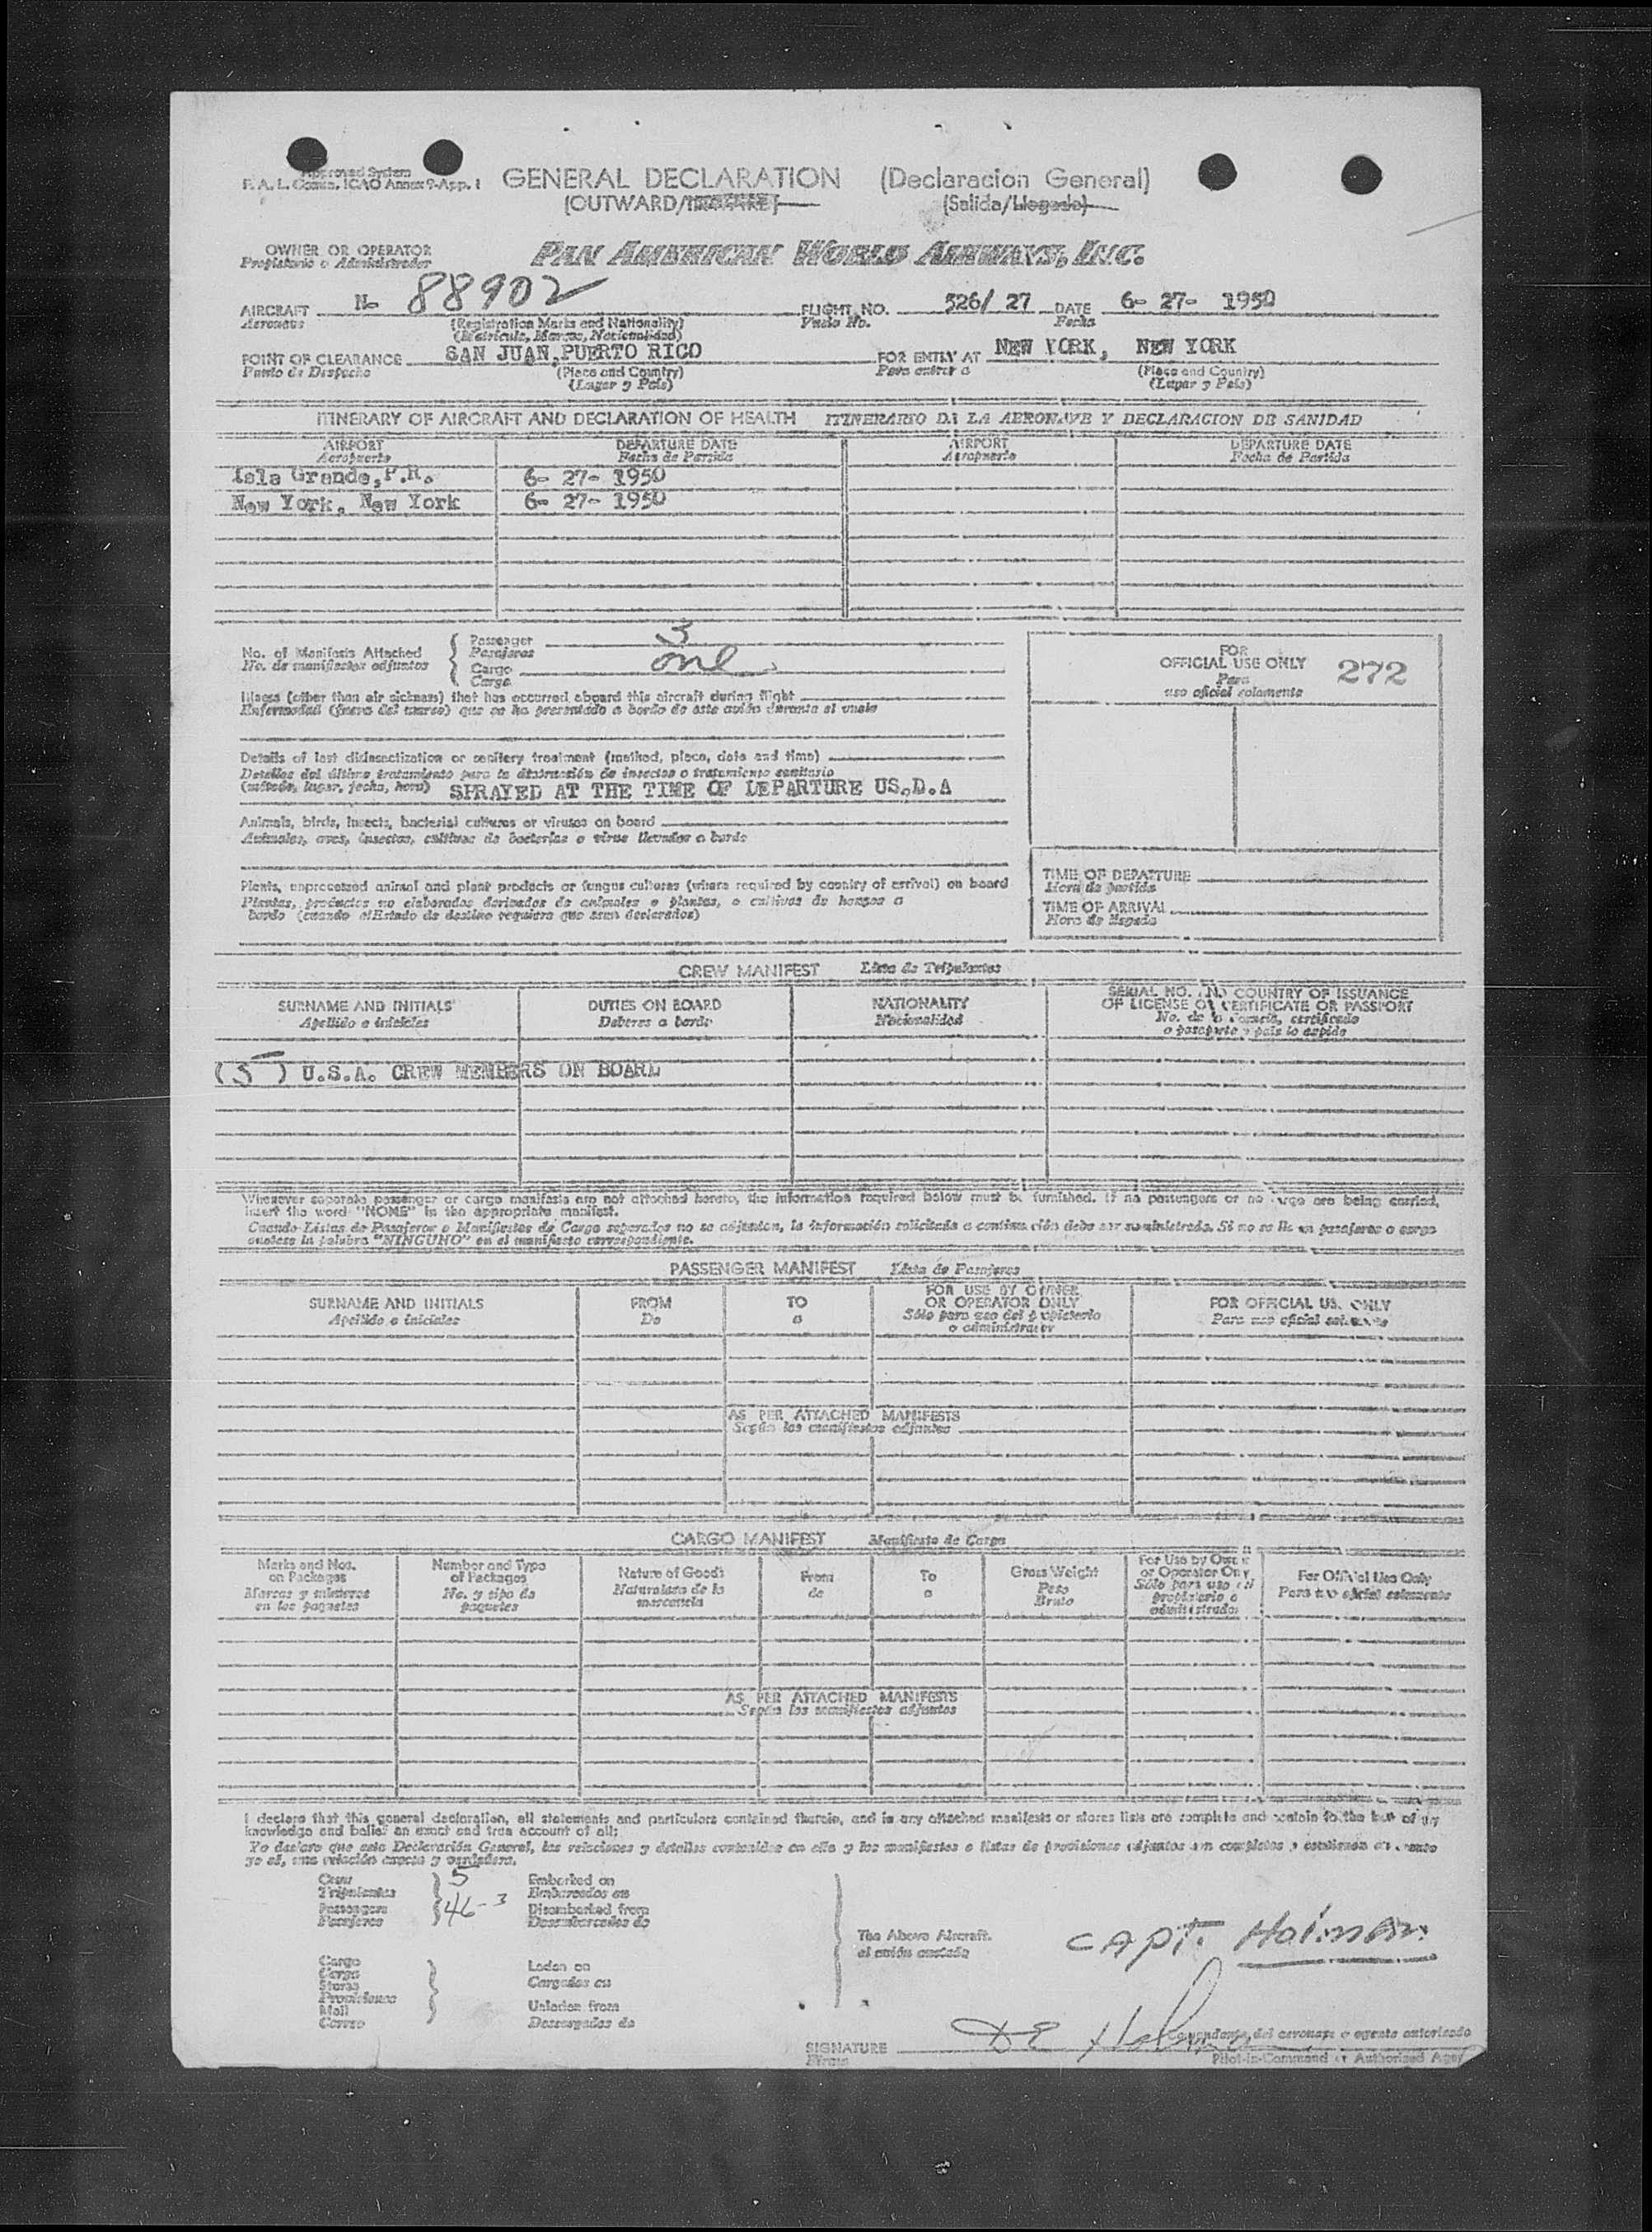 Approved System
F. A. L. Comm. ICAO Annex 9-App. 1
GENERAL DECLARATION (Declaracion General)
(OUTWARD/ (Salida/Llegada)
OWNER OR OPERATOR
Propietario o Administrador
PAN AMERICAN WORLD AIRWAYS, INC.
AIRCRAFT N- 88902 FLIGHT NO. 526/ 27 DATE 6- 27- 1950
Aeronave (Registration Marks and Nationality) Vuelo No. Fecha
(Matricula, Marcas, Nacionalidad)
POINT OF CLEARANCE SAN JUAN, PUERTO RICO FOR ENTRY AT NEW YORK, NEW YORK
Punto de Despacho (Place and Country) Para entrar a (Place and Country)
(Lugar y País) (Lugar y País)
ITINERARY OF AIRCRAFT AND DECLARATION OF HEALTH ITINERARIO DE LA AERONAVE Y DECLARACION DE SANIDAD
AIRPORT DEPARTURE DATE AIRPORT DEPARTURE DATE
Aeropuerto Fecha de Partida Aeropuerto Fecha de Partida
Isla Grande, P.R. 6- 27- 1950
New York, New York 6- 27- 1950
No. of Manifests Attached
No. de manifiestos adjuntos
Passenger 3
Pasajeros
Cargo one
Carga
FOR
OFFICIAL USE ONLY 272
Para
uso oficial solamente
Illness (other than air sickness) that has occurred aboard this aircraft during flight
Enfermedad (fuera del mareo) que se ha presentado a bordo de este avión durante el vuelo
Details of last disinsectization or sanitary treatment (method, place, date and time)
Detalles del último tratamiento para la destrucción de insectos o tratamiento sanitario
(método, lugar, fecha, hora) SPRAYED AT THE TIME OF DEPARTURE US.D.A
Animals, birds, insects, bacterial cultures or viruses on board
Animales, aves, insectos, cultivos de bacterias o virus llevados a bordo
Plants, unprocessed animal and plant products or fungus cultures (where required by country of arrival) on board
Plantas, productos no elaborados derivados de animales o plantas, o cultivos de hongos a
bordo (cuando el Estado de destino requiera que sean declarados)
TIME OF DEPARTURE
Hora de partida
TIME OF ARRIVAL
Hora de llegada
CREW MANIFEST Lista de Tripulantes
SURNAME AND INITIALS DUTIES ON BOARD NATIONALITY SERIAL NO. AND COUNTRY OF ISSUANCE
OF LICENSE OR CERTIFICATE OR PASSPORT
Apellido e iniciales Deberes a bordo Nacionalidad No. de licencia, certificado
o pasaporte y país lo expide
(5) U.S.A. CREW MEMBERS ON BOARD
Whenever separate passenger or cargo manifests are not attached hereto, the information required below must be furnished. If no passengers or no cargo are being carried,
insert the word "NONE" in the appropriate manifest.
Cuando Listas de Pasajeros o Manifiestos de Carga separados no se adjuntan, la información solicitada a continuación debe ser suministrada. Si no se lleva pasajeros o carga
anótese la palabra "NINGUNO" en el manifiesto correspondiente.
PASSENGER MANIFEST Lista de Pasajeros
SURNAME AND INITIALS FROM TO FOR USE BY OWNER
OR OPERATOR ONLY FOR OFFICIAL USE ONLY
Apellido e iniciales De a Sólo para uso del propietario
o administrador Para uso oficial solamente
AS PER ATTACHED MANIFESTS
Según los manifiestos adjuntos
CARGO MANIFEST Manifiesto de Carga
Marks and Nos.
on Packages
Marcas y números
en los paquetes
Number and Type
of Packages
No. y tipo de
paquetes
Nature of Goods
Naturaleza de la
mercancía
From
de
To
a
Gross Weight
Peso
Bruto
For Use by Owner
or Operator Only
Sólo para uso del
propietario o
administrador
For Official Use Only
Para uso oficial solamente
AS PER ATTACHED MANIFESTS
Según los manifiestos adjuntos
I declare that this general declaration, all statements and particulars contained therein, and in any attached manifests or stores lists are complete and contain to the best of my
knowledge and belief an exact and true account of all:
Yo declaro que esta Declaración General, las relaciones y detalles contenidos en ella y los manifiestos o listas de provisiones adjuntos son completos y contienen en cuanto
yo sé, una relación exacta y verdadera.
Crew 5 Embarked on
Tripulantes Embarcados en
Passengers 46-3 Disembarked from
Pasajeros Desembarcados de
Cargo
Carga
Stores
Provisiones
Mail
Correo
Laden on
Cargados en
Unladen from
Descargados de
The Above Aircraft.
el avión anotado
CAPT. Holman
SIGNATURE DE Holman
Firma
Comandante del aeronave o agente autorizado
Pilot-in-Command or Authorized Agent